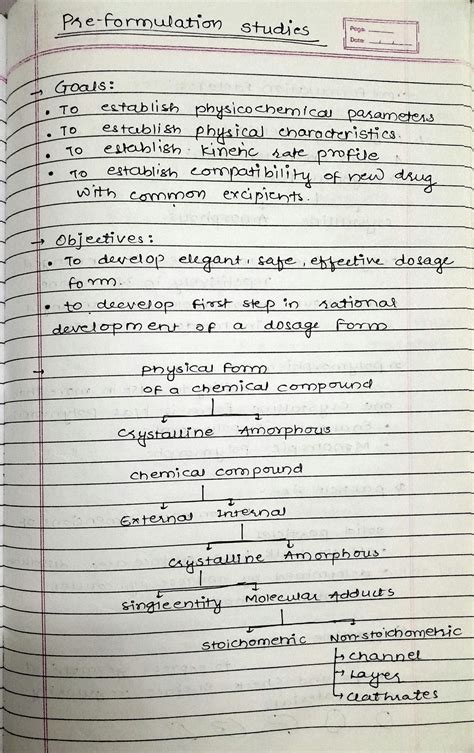 Pre-formulation studies
Page:
Date:
→ Goals:
• To establish physicochemical parameters
• To establish physical characteristics.
• To establish kinetic rate profile
• To establish compatibility of new drug
with common excipients.
→ Objectives:
• To develop elegant, safe, effective dosage
form.
• to deevelop first step in rational
development of a dosage form
→ physical form
of a chemical compound
Crystalline Amorphous
chemical compound
External Internal
crystalline Amorphous
single entity Molecular Adducts
stoichometric Non-stoichometric
→ channel
→ Layer
→ clathrates